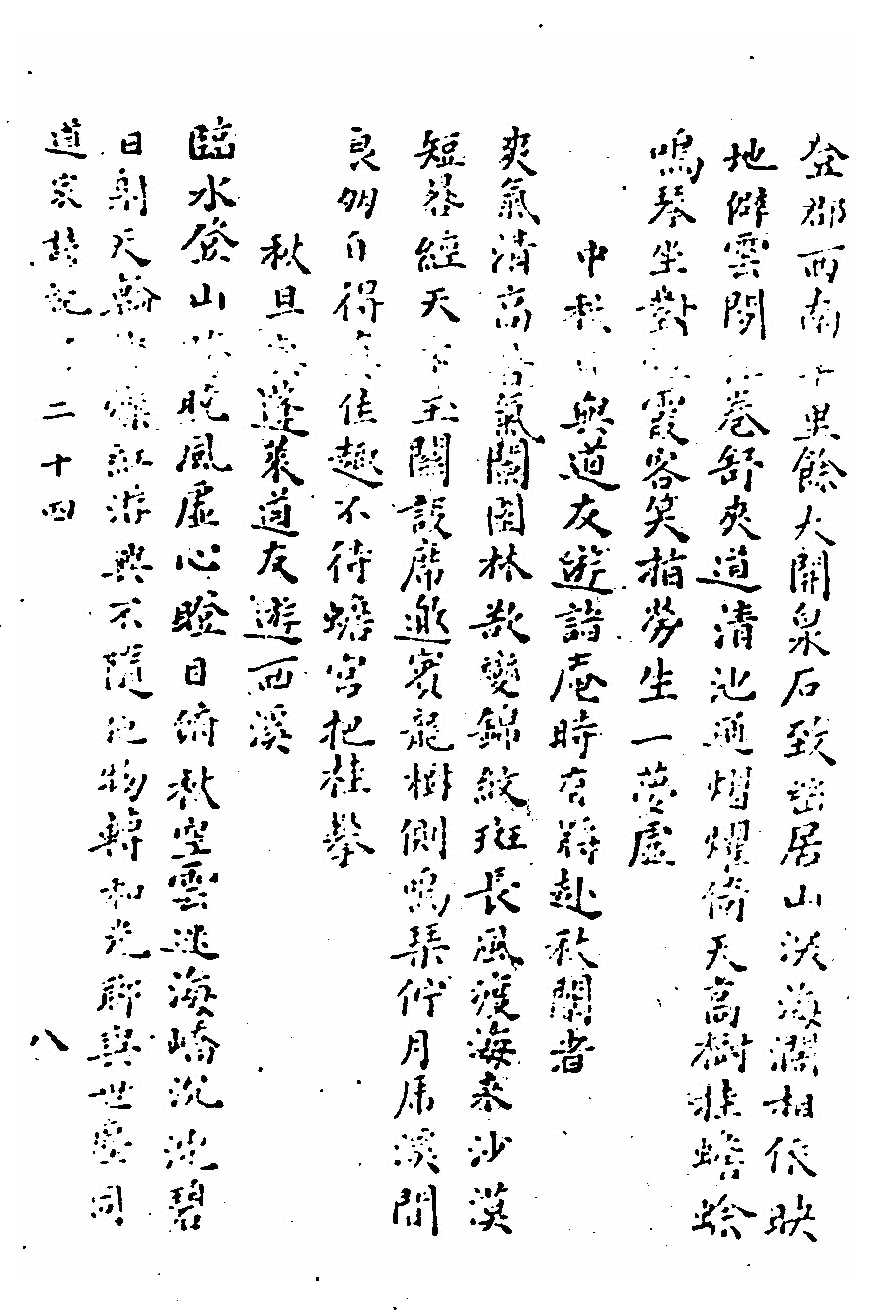 登郡西南十里餘大開泉石致幽居山淡海濶相依映
地僻雲閑卷舒夾道清池通熠燿倚天高樹挂蟾蜍
鳴琴坐對霞客笑指勞生一夢虛
中秋日與道友遊諸庵時有將赴秋闈者
爽氣清高氣闌園林欲變錦紋斑長風渡海來沙漠
短晷經天下玉關設席邀賓龍樹側鳴琴佇月虎溪間
良朋自得真佳趣不待蟾宮把桂攀
秋旦蓬萊道友遊西溪
臨水登山晚風虛心瞪目俯秋空雲迷海嶠沉沈碧
日射天爍紅游興不隨物轉和光聊與世塵同
道家詩紀 二十四
八